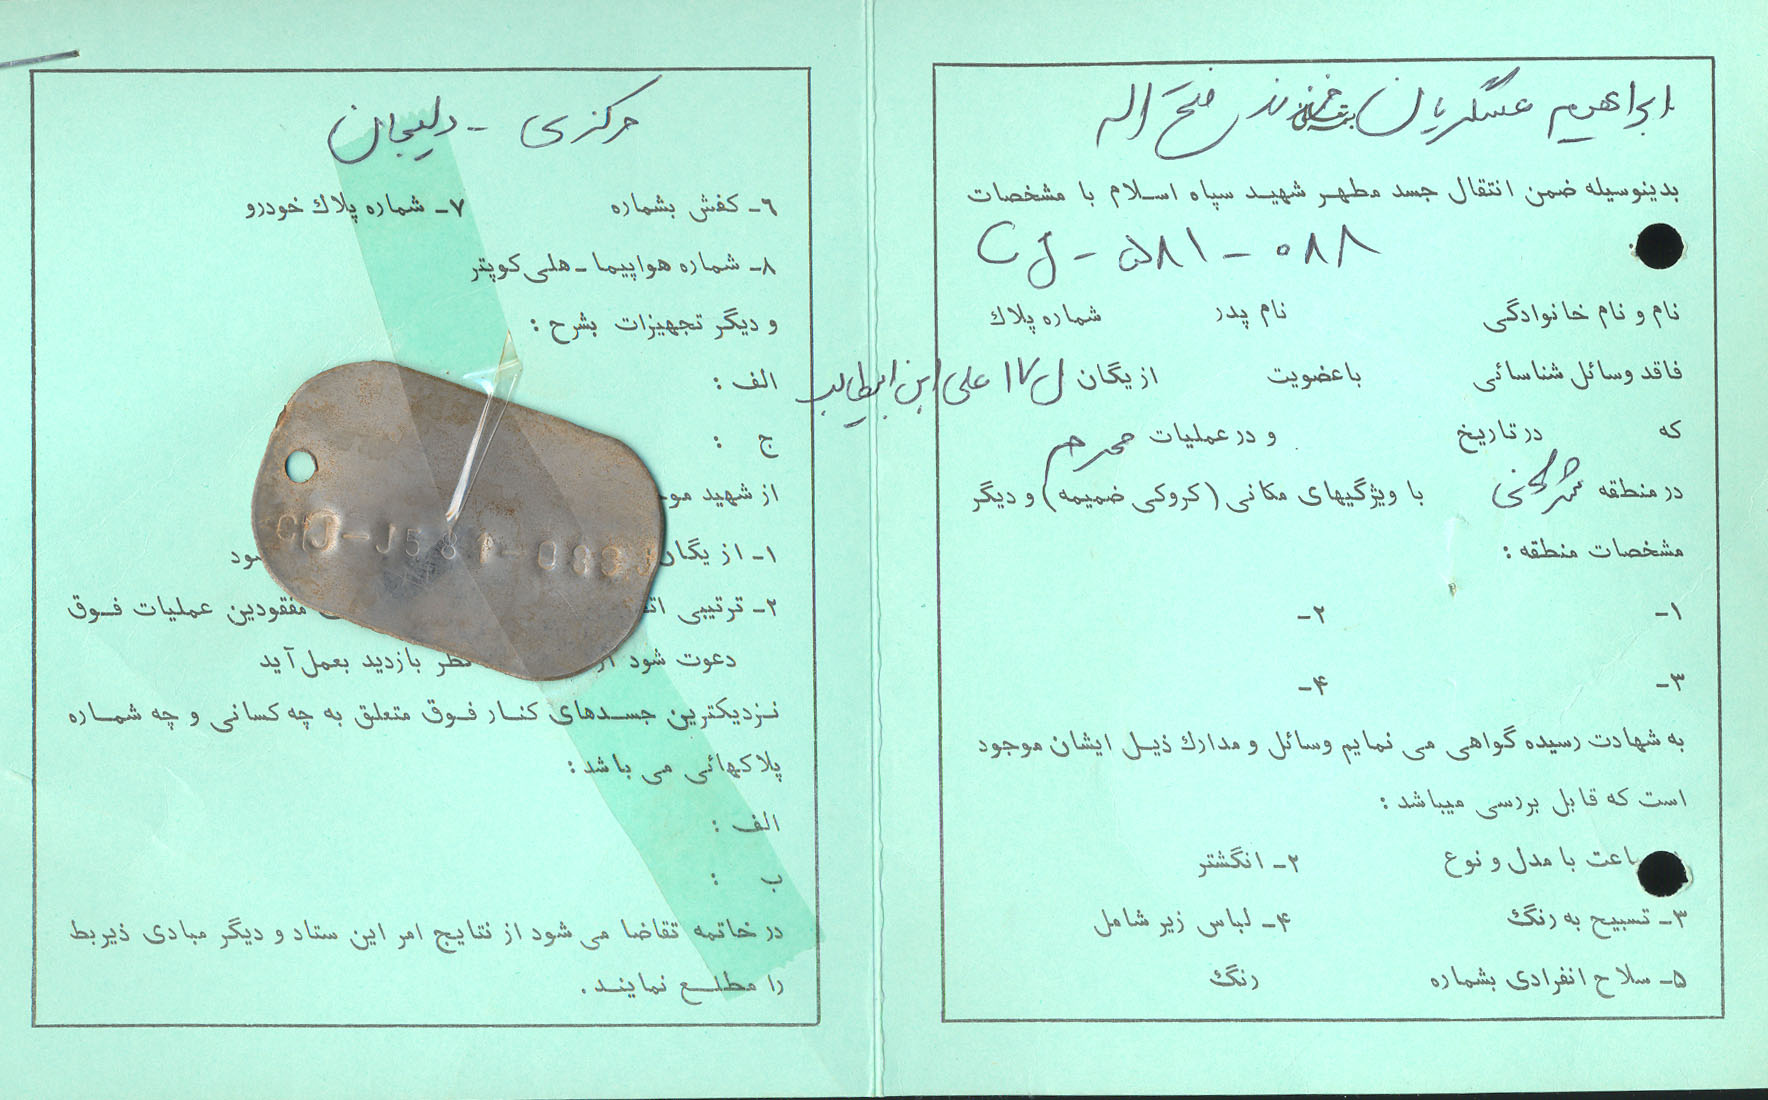 ابراهیم عسگریان فرزند فتح اله
بدینوسیله ضمن انتقال جسد مطهر شهید سپاه اسلام با مشخصات
CJ - ۵۸۱ - ۰۸۸
نام و نام خانوادگی نام پدر شماره پلاك
فاقد وسائل شناسائی با عضویت از یگان ل ۱۷ علی ابن ابیطالب
که در تاریخ و در عملیات محرم
در منطقه شرهانی با ویژگیهای مکانی (کروکی ضمیمه) و دیگر
مشخصات منطقه :
۱- ۲-
۳- ۴-
به شهادت رسیده گواهی می نمایم وسائل و مدارك ذیل ایشان موجود
است که قابل بررسی میباشد :
اعت با مدل و نوع ۲- انگشتر
۳- تسبیح به رنگ ۴- لباس زیر شامل
۵- سلاح انفرادی بشماره رنگ
مرکزی - دلیجان
۶- کفش بشماره ۷- شماره پلاك خودرو
۸- شماره هواپیما - هلی کوپتر
و دیگر تجهیزات بشرح :
الف :
ج :
از شهید مو
۱- از یگان ود
۲- ترتیبی ات مفقودین عملیات فوق
دعوت شود از نظر بازدید بعمل آید
نزدیکترین جسدهای کنار فوق متعلق به چه کسانی و چه شماره
پلاکهائی می باشد :
الف :
ب :
در خاتمه تقاضا می شود از نتایج امر این ستاد و دیگر مبادی ذیربط
را مطلع نمایند .
CJ-J581-088J